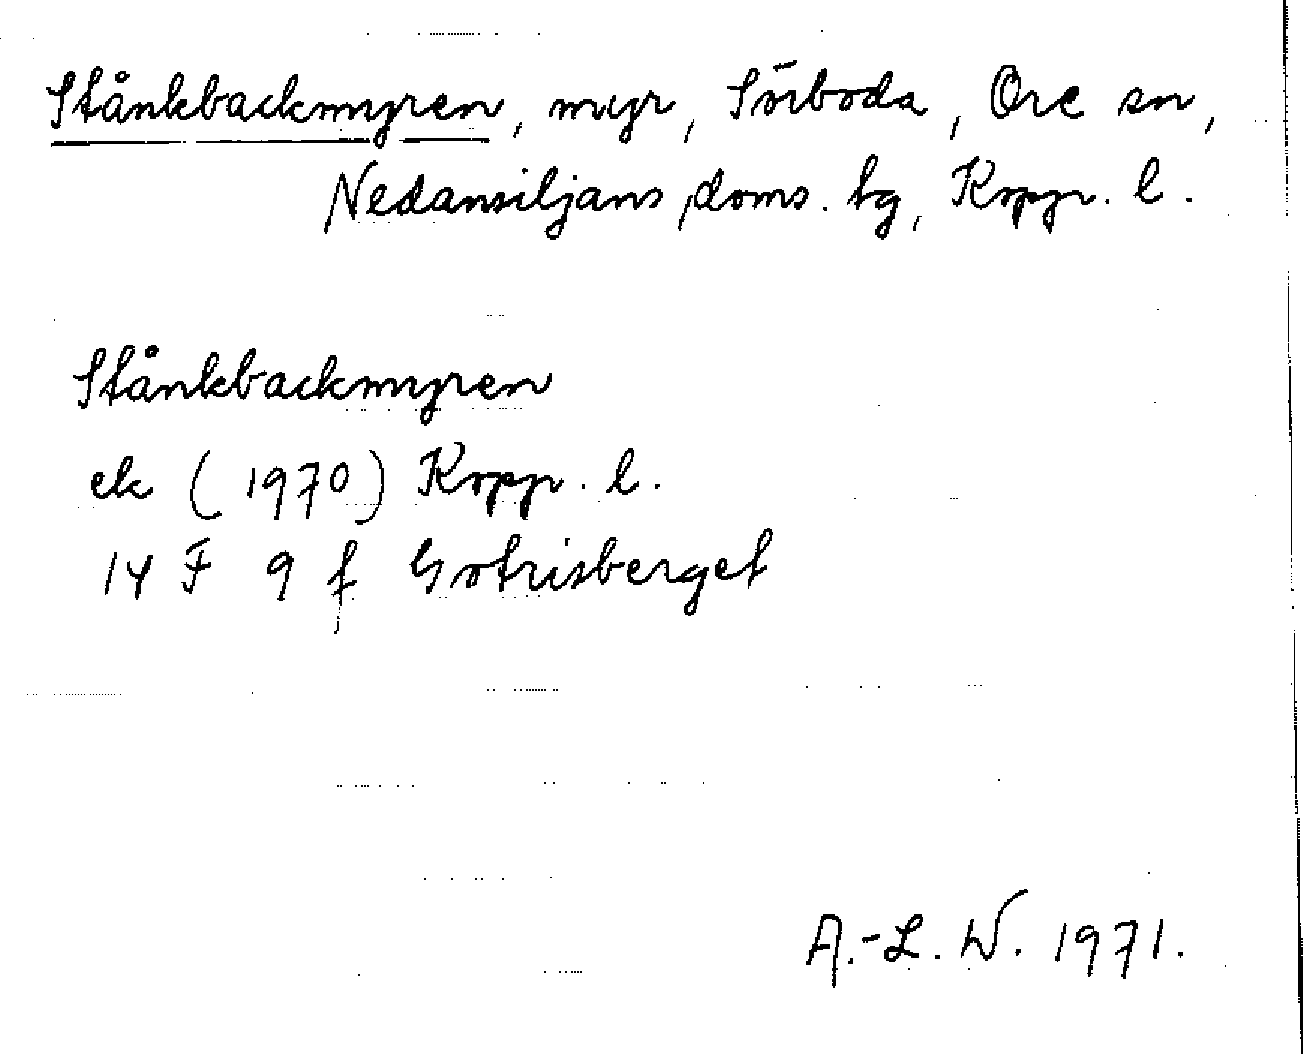 Stånkbackmyren, myr, Sörboda, Ore sn,
Nedansiljans doms. tg, Kopp. l.
Stånkbackmyren
ek (1970) Kopp. l.
14 F 9 f Gotrisberget
A.-L. W. 1971.